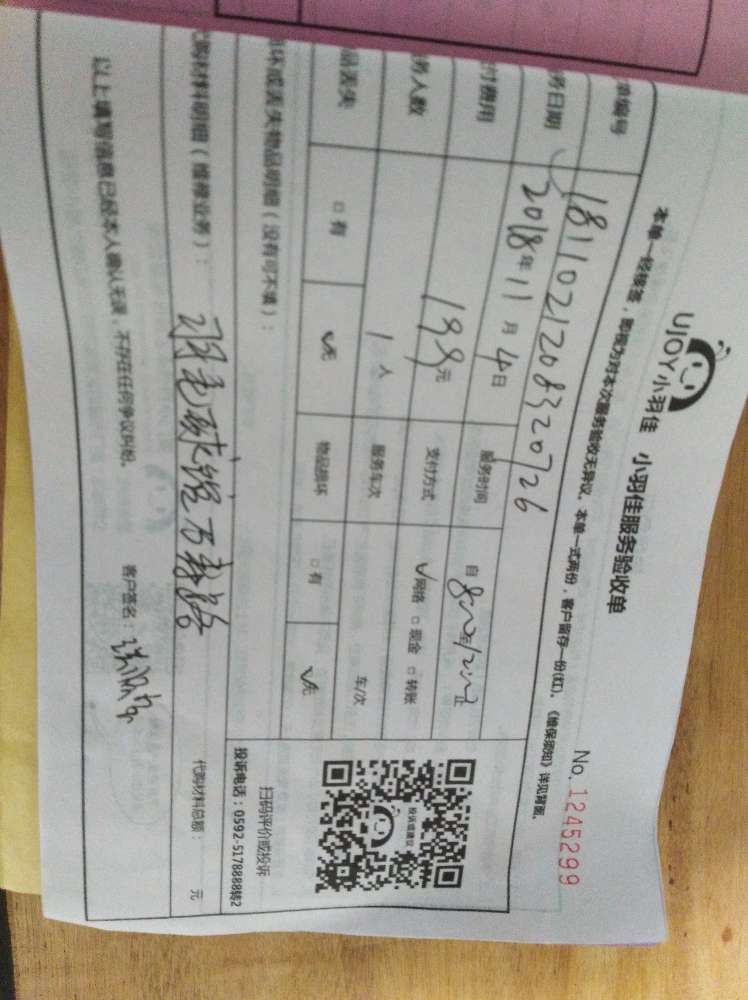 UJOY小羽佳 小羽佳服务验收单
No. 1245299
本单一经核签，即视为对本次服务验收无异议。本单一式两份，客户留存一份(红)。《维保须知》详见背面。
单编号 1811021208320726
务日期 2018年11月4日 服务时间 自8:00至12:00止
付费用 199元 支付方式 ✓网络 □现金 □转账
务人数 1人 服务车次 车/次
品丢失 □有 ✓无 物品损坏 □有 ✓无
损坏或丢失物品明细（没有可不填）：
代购材料明细（维修业务）：
羽毛球馆
代购材料总额： 元
扫码评价或投诉
投诉电话：0592-5178888转2
投诉或建议
以上填写信息已经本人确认无误，不存在任何争议纠纷。
客户签名：